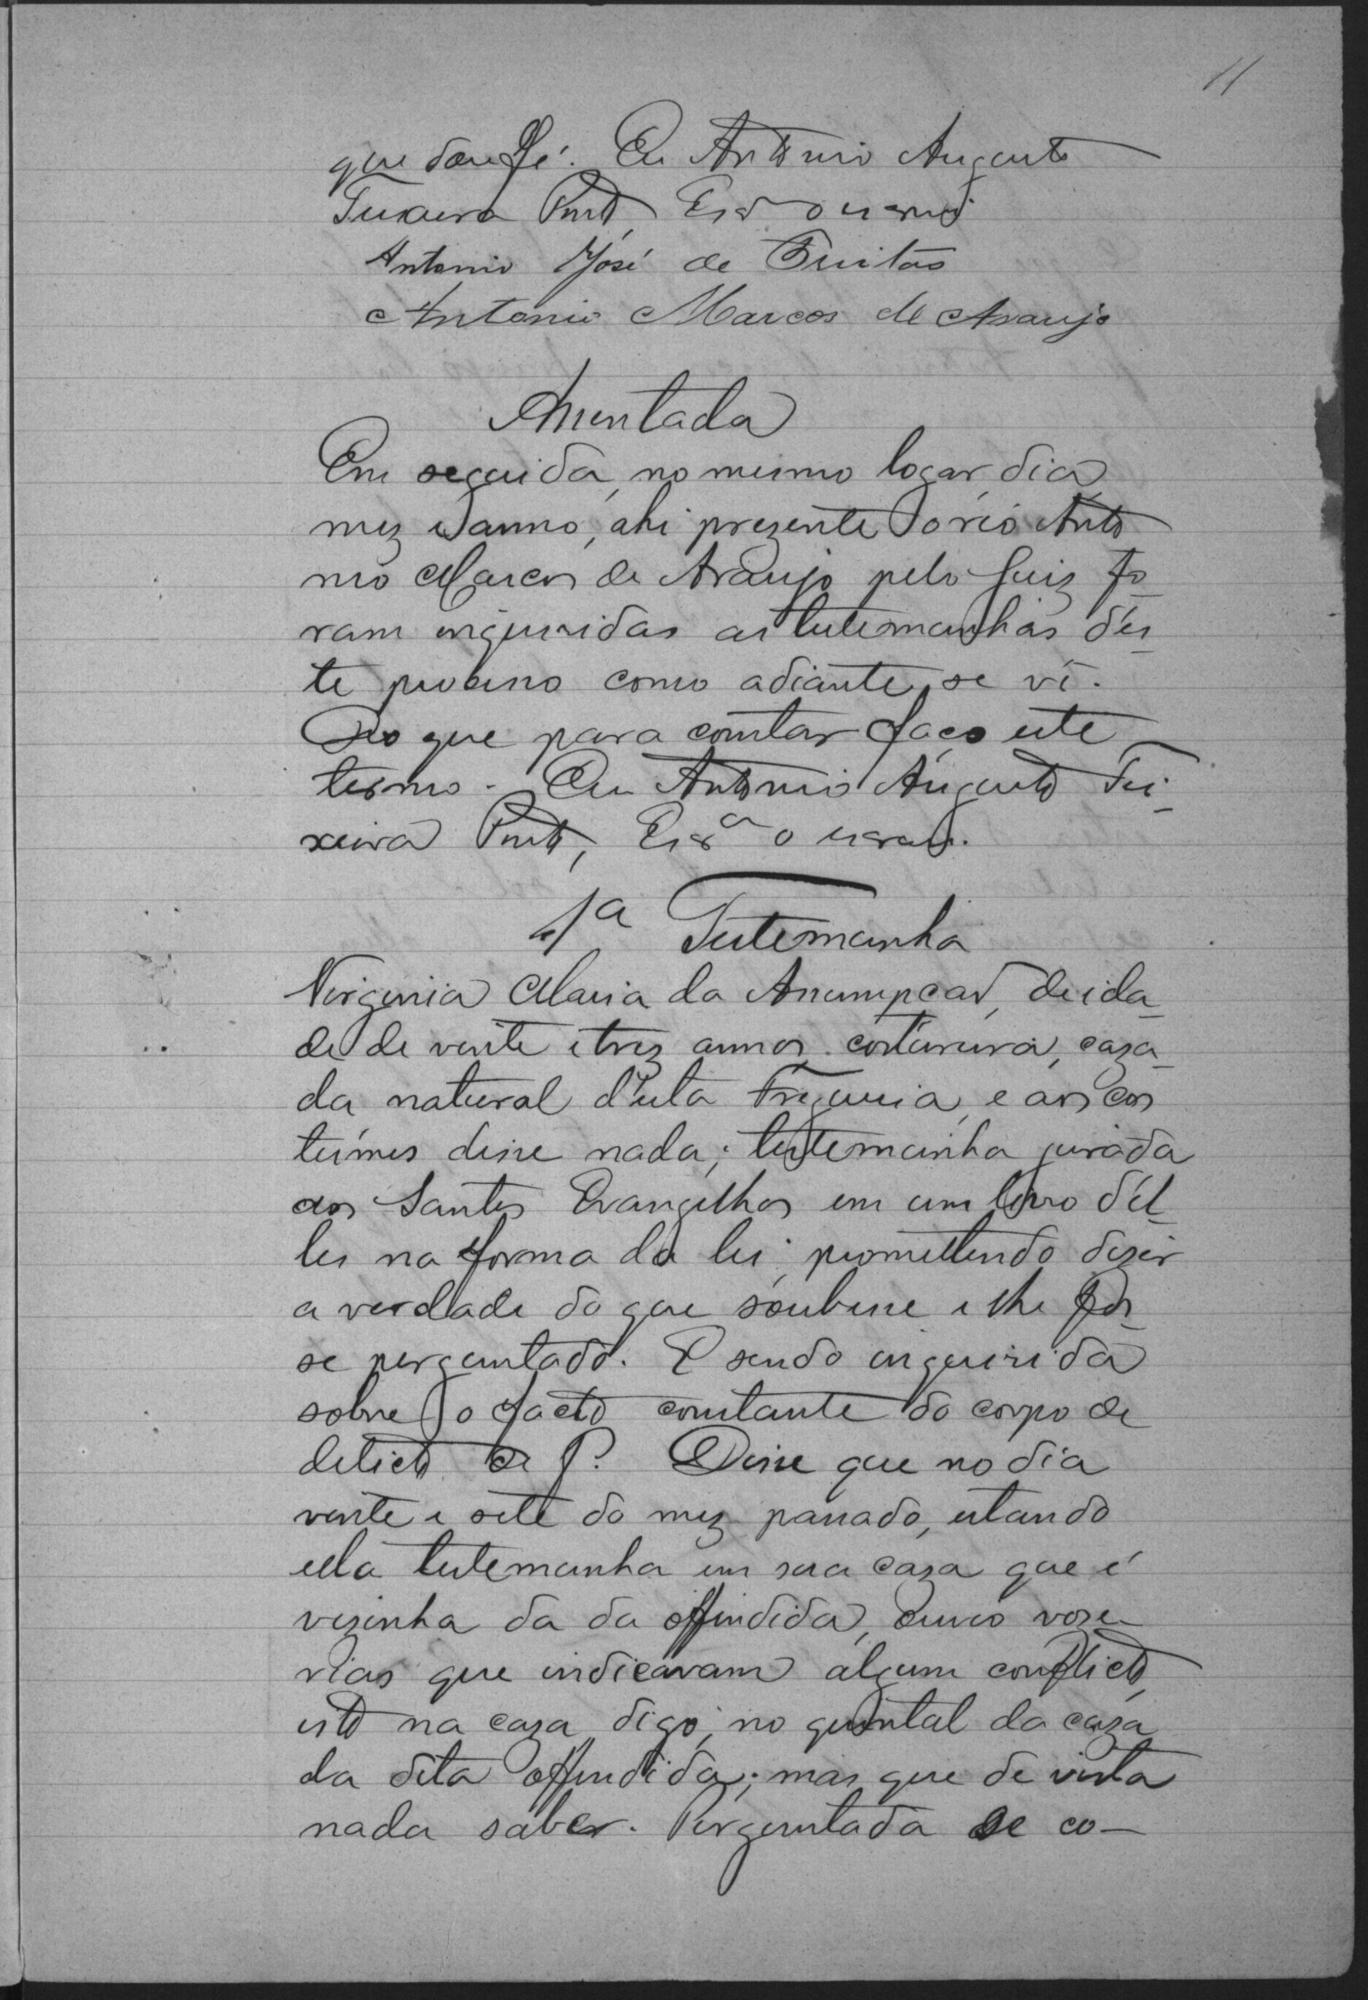 11
que dou fé. Eu Antonio Augusto
Teixeira Pinto, Escrm o escrevi
Antonio José de Freitas
Antonio Marcos de Araujo
Assentada
Em seguida, no mesmo logar, dia,
mez e anno, ahi prezente o réo Anto
nio Marcos de Araujo pelo Juiz fo_
ram inqueridas as testemunhas d'es_
te processo como adiante se vê.
Do que para constar faço este
termo. Eu Antonio Augusto Tei_
xeira Pinto, Escrm o escrevi.
1a Testemunha
Virginia Maria da Assumpção, de ida_
de de vinte e trez annos, costureira, caza_
da natural d'esta Freguezia, e aos cos
tumes disse nada; testemunha jurada
aos Santos Evangelhos em um livro d'el_
les na forma da lei, promettendo dizer
a verdade do que soubesse e lhe fos_
se perguntado. E sendo inquirida
sobre o facto constante do corpo de
delicto de f. Disse que no dia
vinte e sete do mez passado, estando
ella testemunha em sua caza que é
vezinha da da offendida, ouvio voze_
rias que indicavam algum conflicto,
isto na caza, digo, no quintal da caza
da dita offendida; mas que de vista
nada saber. Perguntada se co_